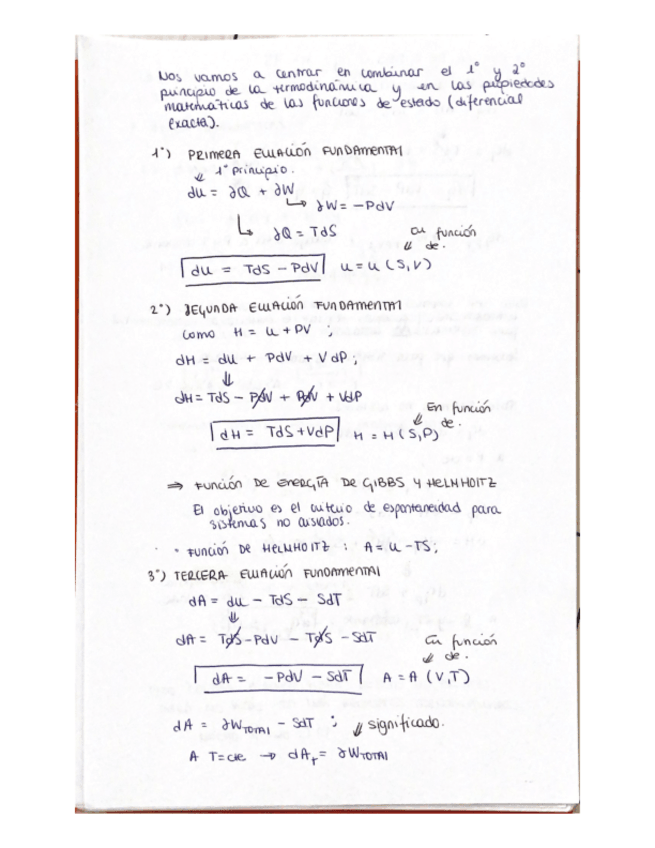 Nos vamos a centrar en combinar el 1º y 2º
principio de la termodinámica y en las propiedades
matemáticas de las funciones de estado (diferencial
exacta).
1º) PRIMERA ECUACIÓN FUNDAMENTAL
⇙ 1º principio.
du = ∂Q + ∂W
↳ ∂W = -PdV
↳ ∂Q = TdS
En función
⇙ de.
du = TdS - PdV u = u (S,V)
2º) SEGUNDA ECUACIÓN FUNDAMENTAL
Como H = u + PV ;
dH = du + PdV + VdP ;
⇓
dH = TdS - PdV + PdV + VdP
En función
⇙ de.
dH = TdS + VdP H = H (S,P)
⇒ FUNCIÓN DE ENERGÍA DE GIBBS Y HELMHOLTZ
El objetivo es el criterio de espontaneidad para
sistemas no aislados.
• FUNCIÓN DE HELMHOLTZ : A = u - TS ;
3º) TERCERA ECUACIÓN FUNDAMENTAL
dA = du - TdS - SdT
⇓
dA = TdS - PdV - TdS - SdT
En función
⇙ de.
dA = - PdV - SdT A = A (V,T)
dA = ∂W TOTAL - SdT ; ⇙ significado.
A T=cte → dA_T = ∂W TOTAL